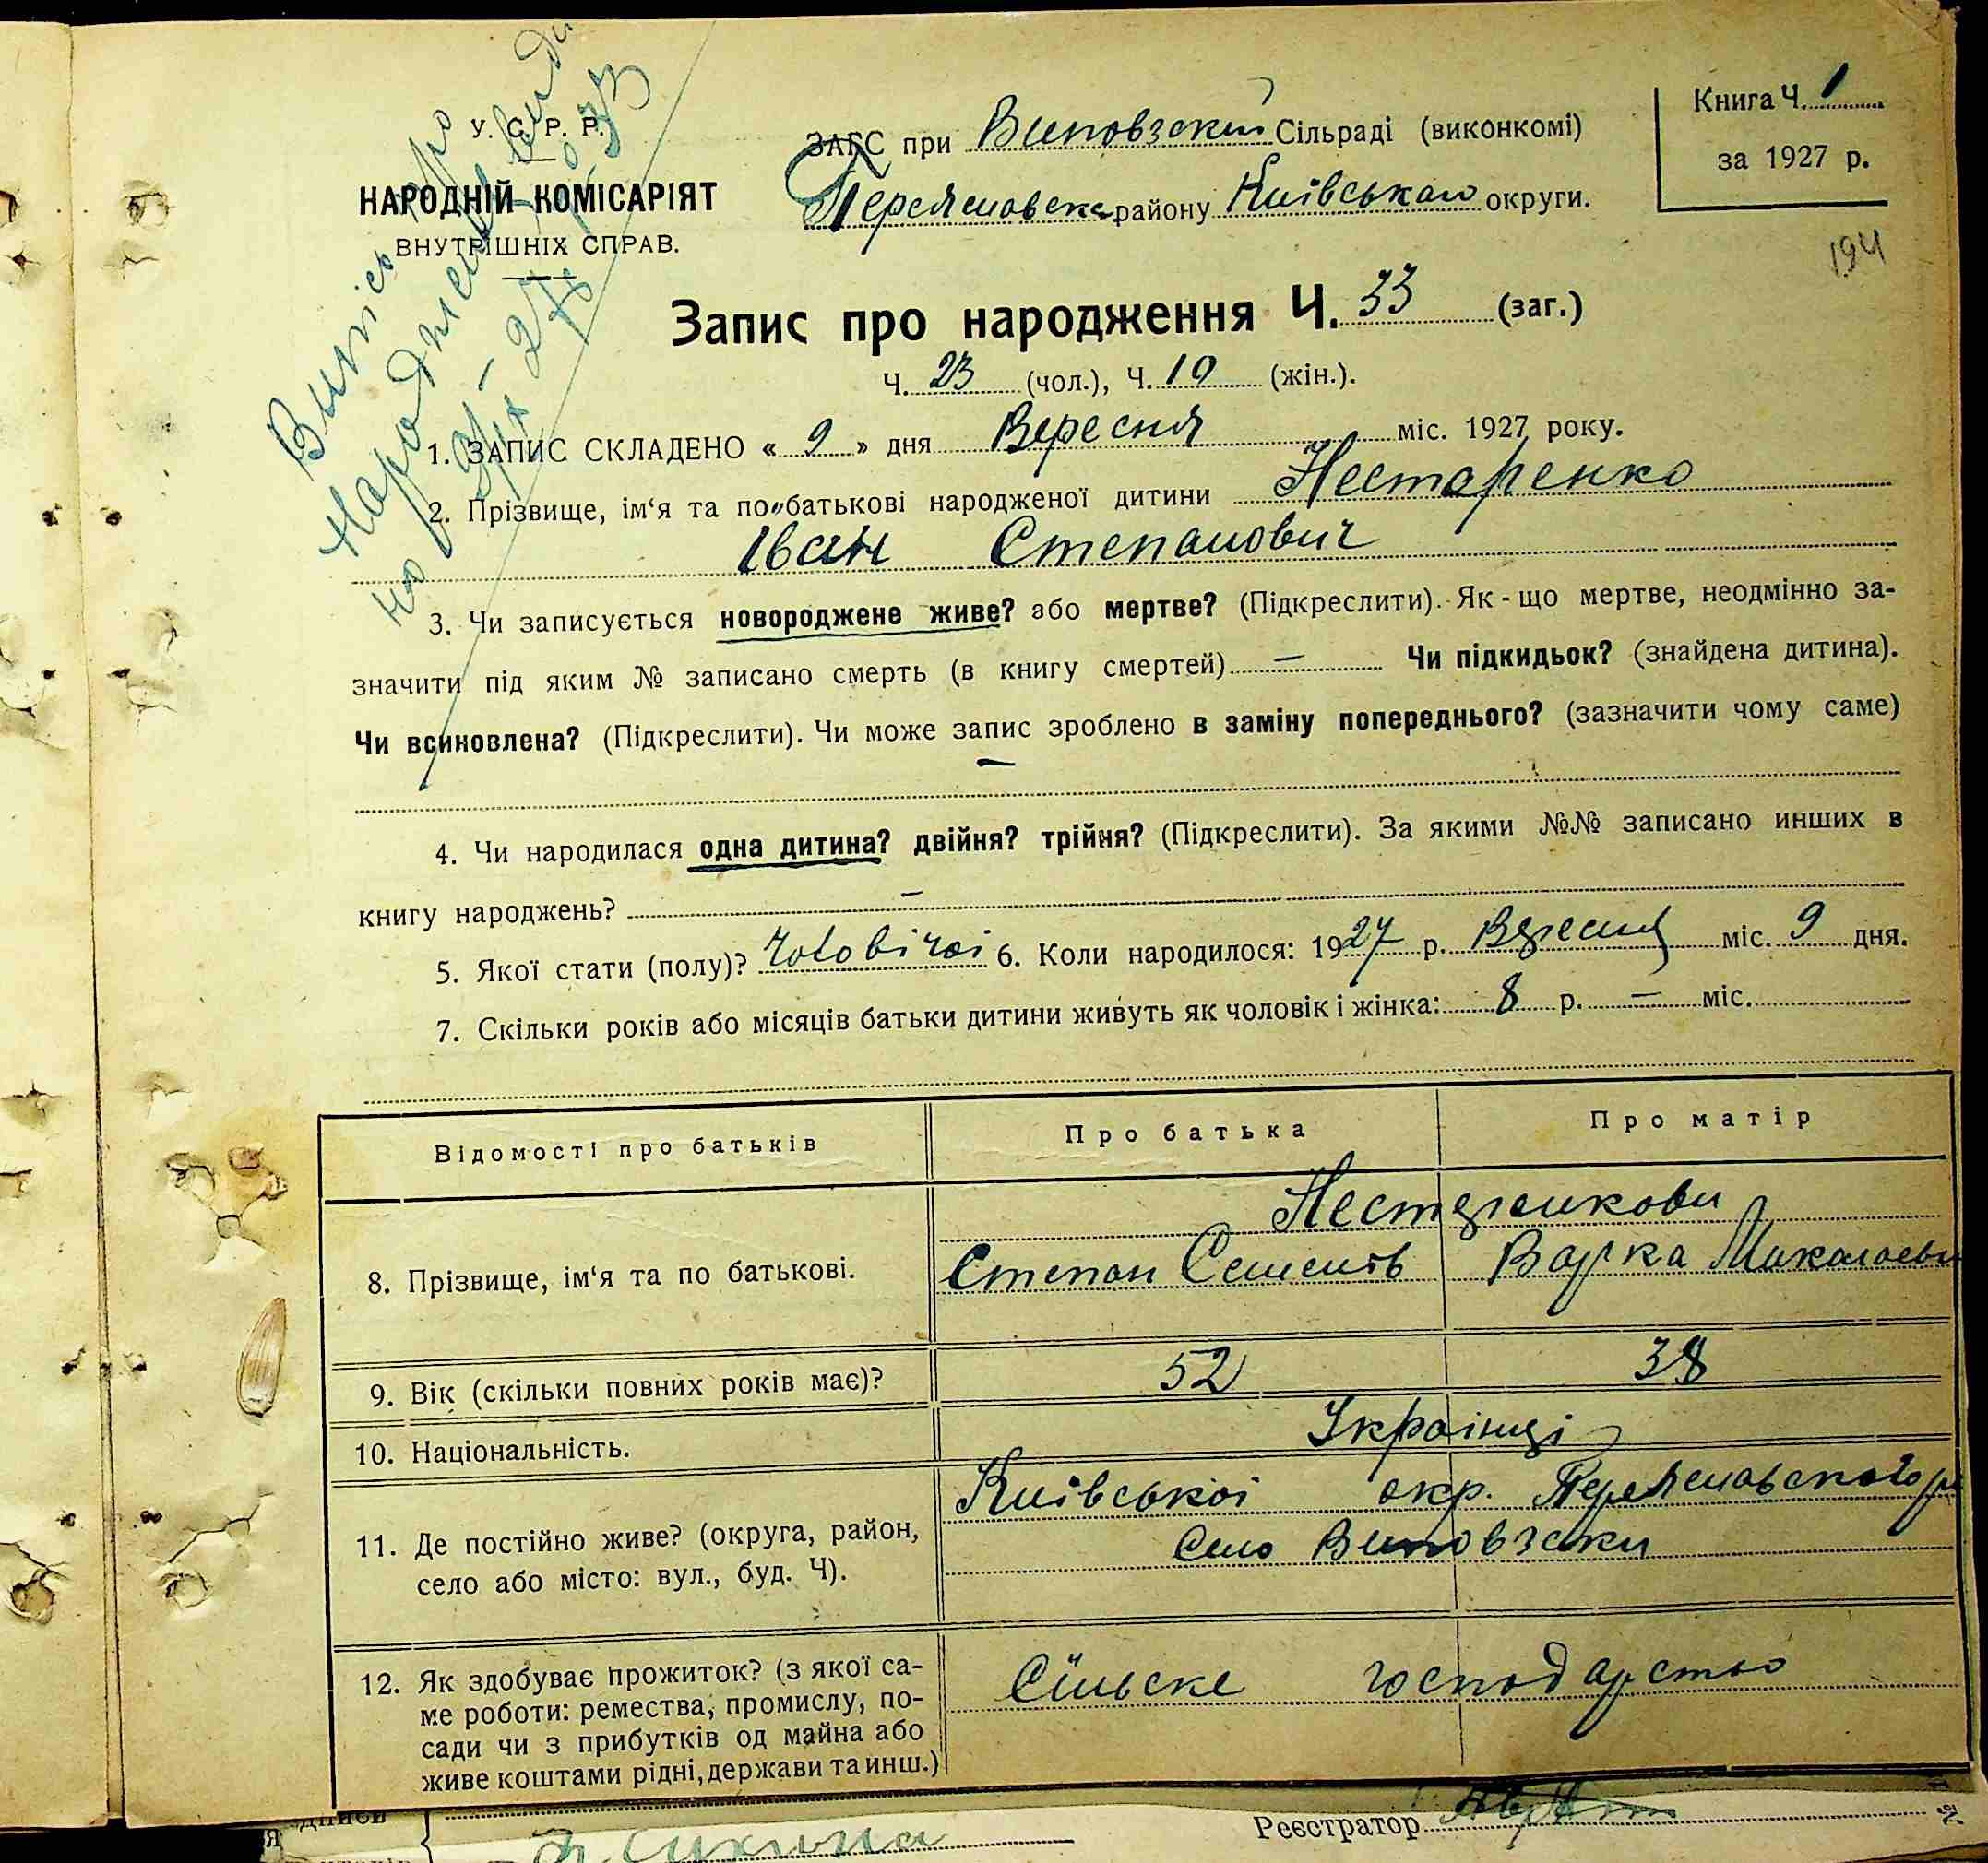 У. С. Р. Р.
НАРОДНІЙ КОМІСАРІЯТ
ВНУТРІШНІХ СПРАВ.
Випись про
народжен
ЗАГС при Виповзскій Сільраді (виконкомі)
Переяславськ району Київського округи.
Книга Ч. 1
за 1927 р.
194
Запис про народження Ч. 33 (заг.)
Ч. 23 (чол.), Ч. 10 (жін.).
1. ЗАПИС СКЛАДЕНО « 9 » дня Вересня міс. 1927 року.
2. Прізвище, ім'я та по-батькові народженої дитини Нестеренко
Іван Степанович
3. Чи записується новороджене живе? або мертве? (Підкреслити). Як - що мертве, неодмінно за-
значити під яким № записано смерть (в книгу смертей) — Чи підкидьок? (знайдена дитина).
Чи всиновлена? (Підкреслити). Чи може запис зроблено в заміну попереднього? (зазначити чому саме)
—
4. Чи народилася одна дитина? двійня? трійня? (Підкреслити). За якими №№ записано инших в
книгу народжень? —
5. Якої стати (полу)? чоловічої 6. Коли народилося: 1927 р. Вересня міс. 9 дня.
7. Скільки років або місяців батьки дитини живуть як чоловік і жінка: 8 р. — міс.
Відомості про батьків Про батька Про матір
Нестеренкови
8. Прізвище, ім'я та по батькові. Степан Семенів Варка Миколаевн
9. Вік (скільки повних років має)? 52 38
10. Національність. Українці
Київської окр. Переяславського р
11. Де постійно живе? (округа, район,
село або місто: вул., буд. Ч).
Село Виповзки
12. Як здобуває прожиток? (з якої са-
ме роботи: ремества, промислу, по-
сади чи з прибутків од майна або
живе коштами рідні, держави та инш.)
Сільске господарство
Реєстратор